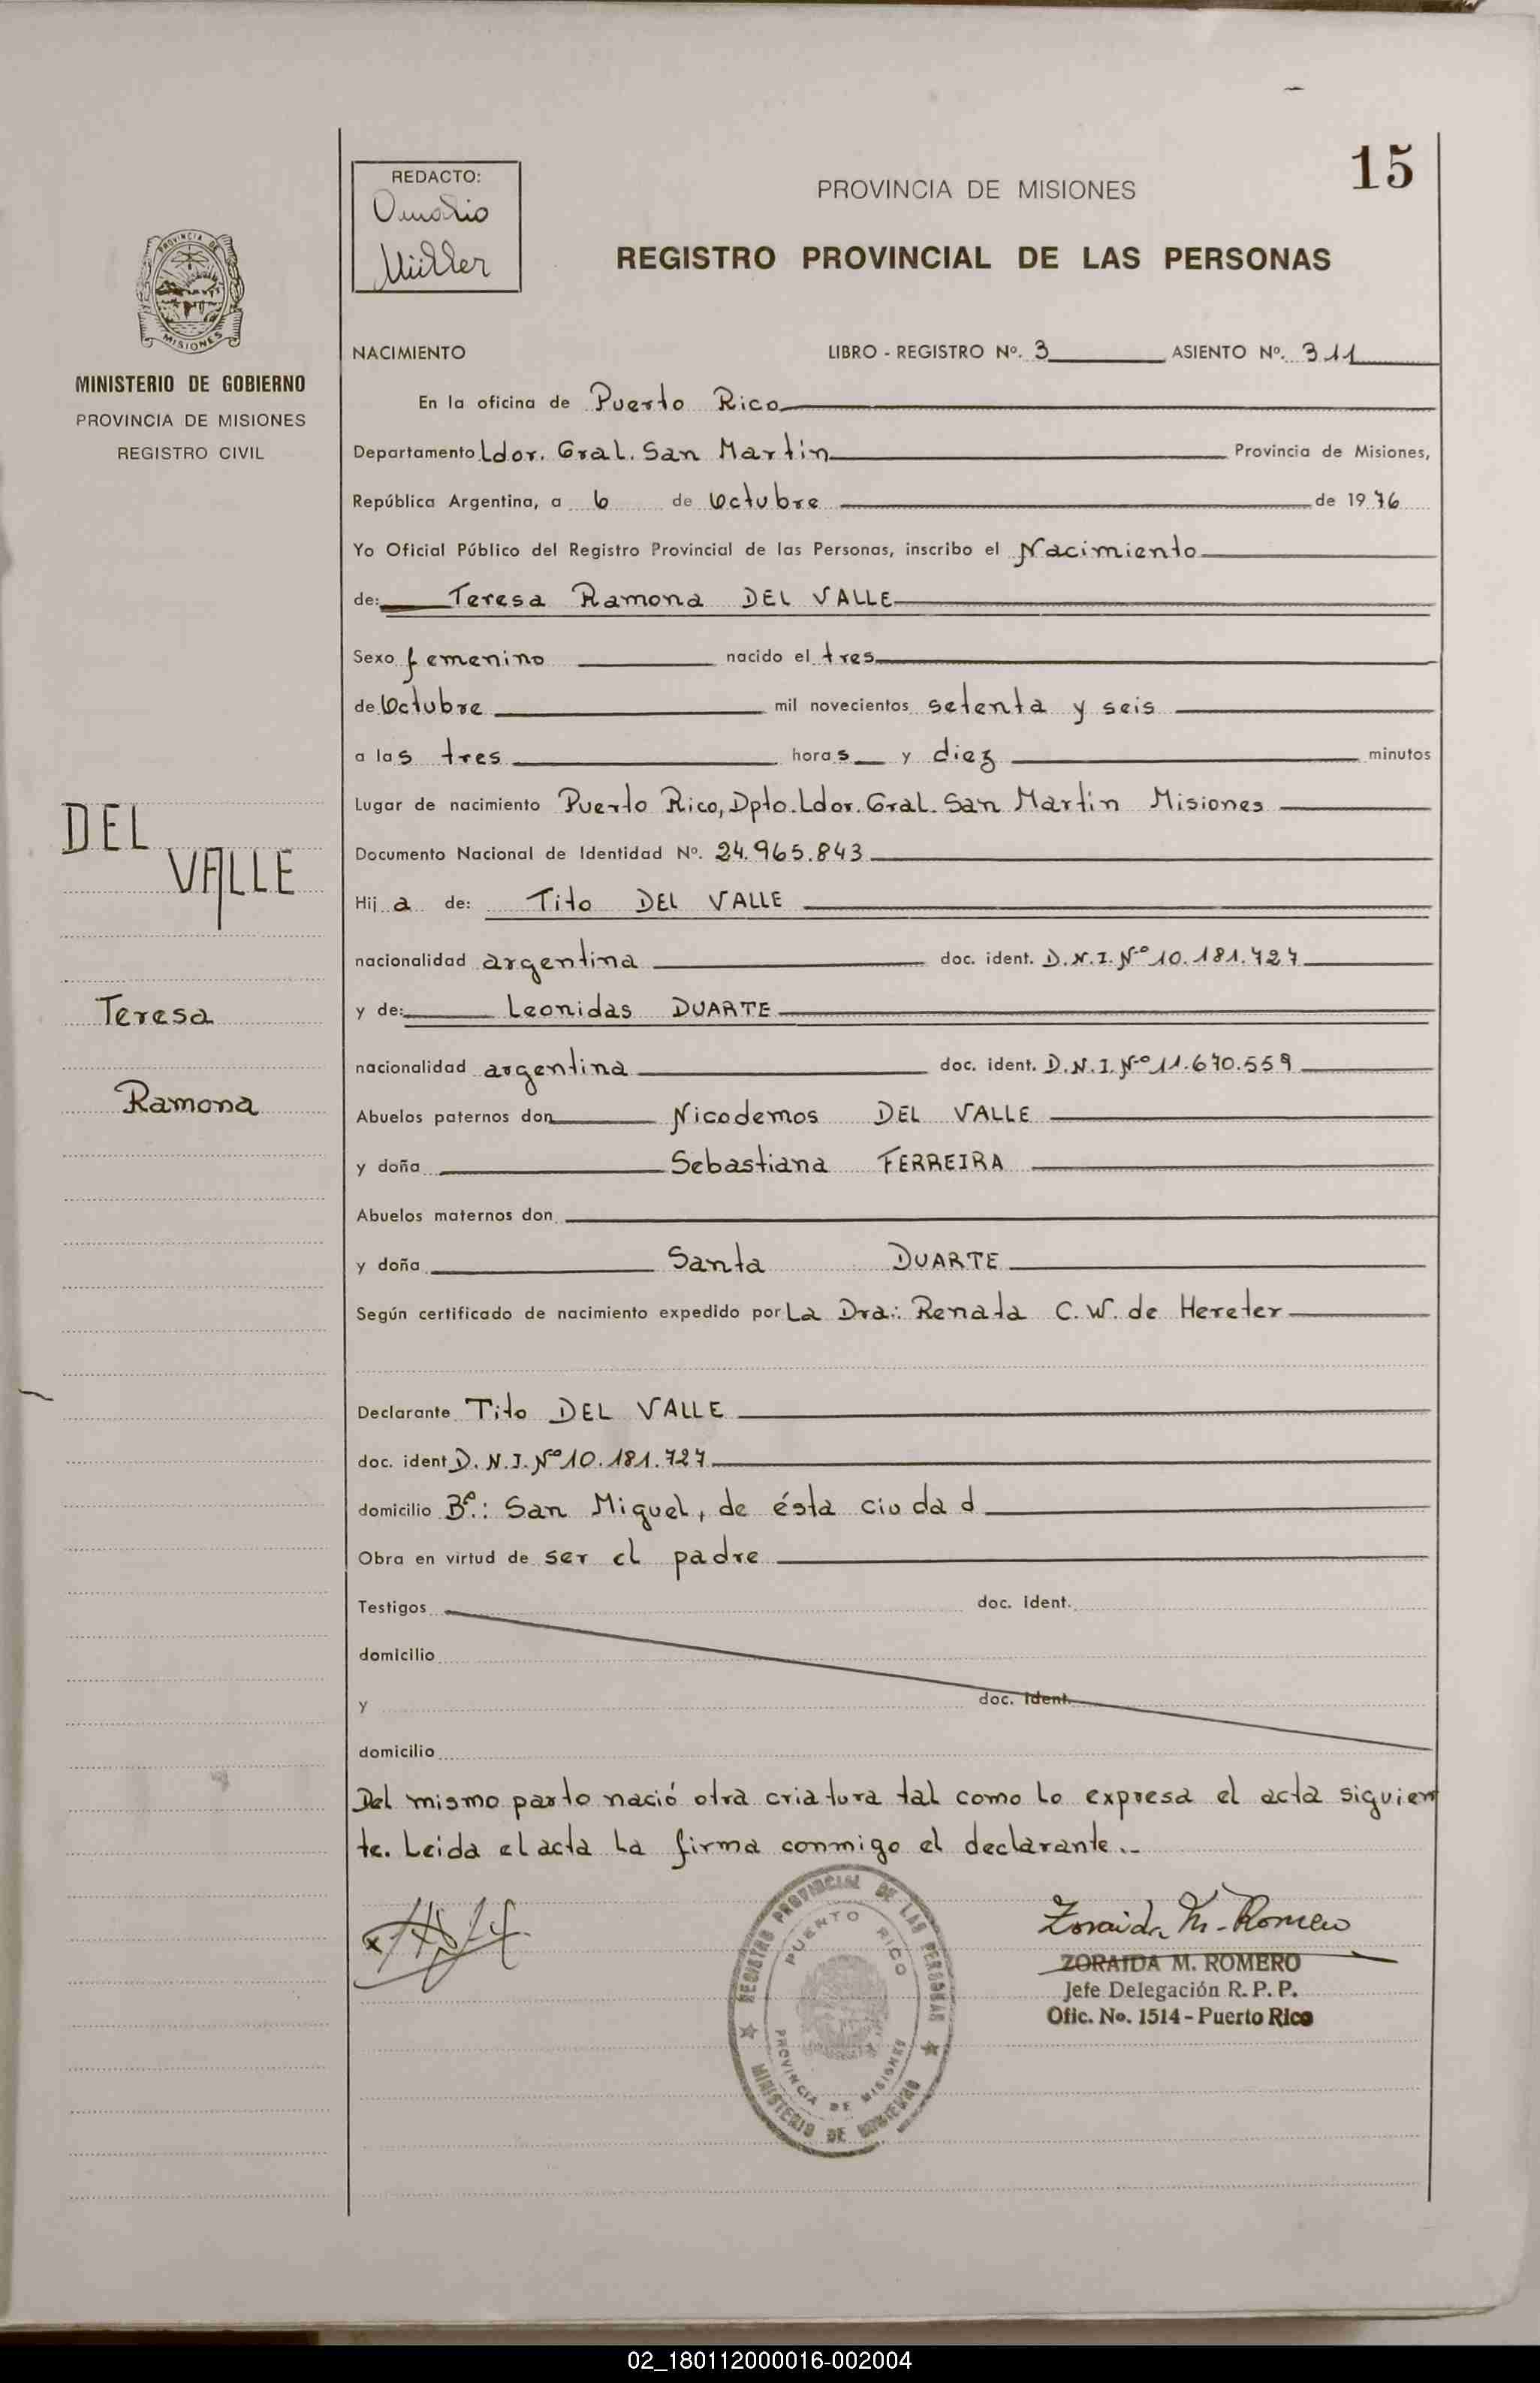 15
REDACTO:
Omario
Müller
PROVINCIA DE MISIONES
REGISTRO PROVINCIAL DE LAS PERSONAS
PROVINCIA DE
MISIONES
MINISTERIO DE GOBIERNO
PROVINCIA DE MISIONES
REGISTRO CIVIL
DEL
VALLE
Teresa
Ramona
NACIMIENTO LIBRO - REGISTRO Nº. 3 ASIENTO Nº. 311
En la oficina de Puerto Rico
Departamento Ldor. Gral. San Martin Provincia de Misiones,
República Argentina, a 6 de Octubre de 1976
Yo Oficial Público del Registro Provincial de las Personas, inscribo el Nacimiento
de: Teresa Ramona DEL VALLE
Sexo femenino nacido el tres
de Octubre mil novecientos setenta y seis
a las tres horas y diez minutos
Lugar de nacimiento Puerto Rico, Dpto. Ldor. Gral. San Martin Misiones
Documento Nacional de Identidad Nº. 24.965.843
Hija de: Tito DEL VALLE
nacionalidad argentina doc. ident. D.N.I. Nº 10.181.727
y de: Leonidas DUARTE
nacionalidad argentina doc. ident. D.N.I. Nº 11.670.559
Abuelos paternos don Nicodemos DEL VALLE
y doña Sebastiana FERREIRA
Abuelos maternos don
y doña Santa DUARTE
Según certificado de nacimiento expedido por La Dra.: Renata C.W. de Hereter
Declarante Tito DEL VALLE
doc. ident D.N.I. Nº 10.181.727
domicilio Bº.: San Miguel, de ésta ciudad
Obra en virtud de ser el padre
Testigos doc. ident.
domicilio
y doc. ident.
domicilio
Del mismo parto nació otra criatura tal como lo expresa el acta siguien
te. Leida el acta la firma conmigo el declarante..-
REGISTRO PROVINCIAL DE LAS PERSONAS
PUERTO RICO
PROVINCIA DE MISIONES
MINISTERIO DE GOBIERNO
Zoraida M. Romero
ZORAIDA M. ROMERO
Jefe Delegación R. P. P.
Ofic. No. 1514 - Puerto Rico
02_180112000016-002004